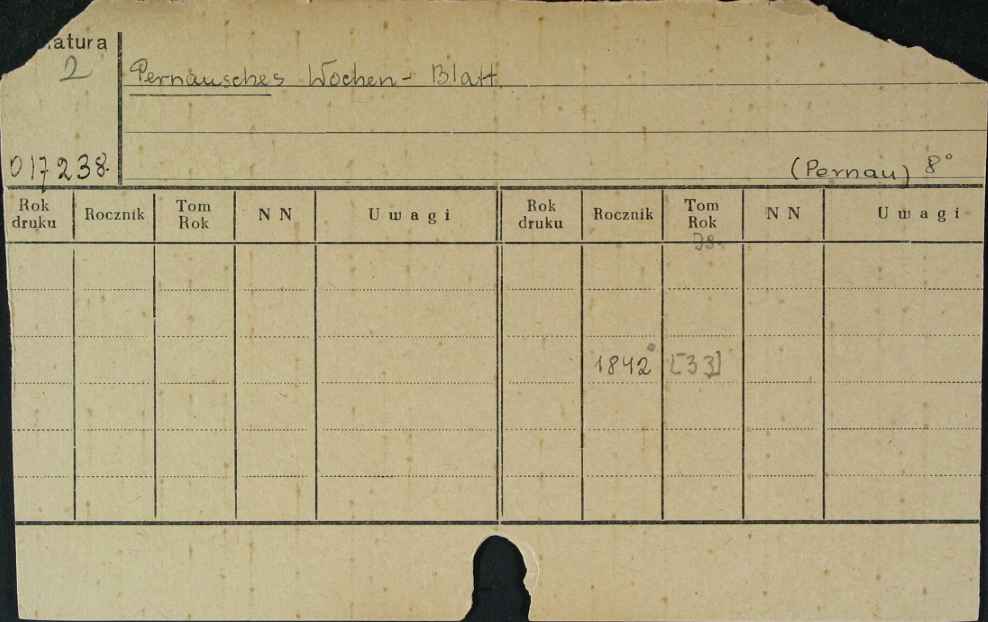 atura
2
Pernausches Wochen - Blatt.
017238.
(Pernau) 8°
Rok druku Rocznik Tom Rok N N Uwagi Rok druku Rocznik Tom Rok N N Uwagi
1842° [33]